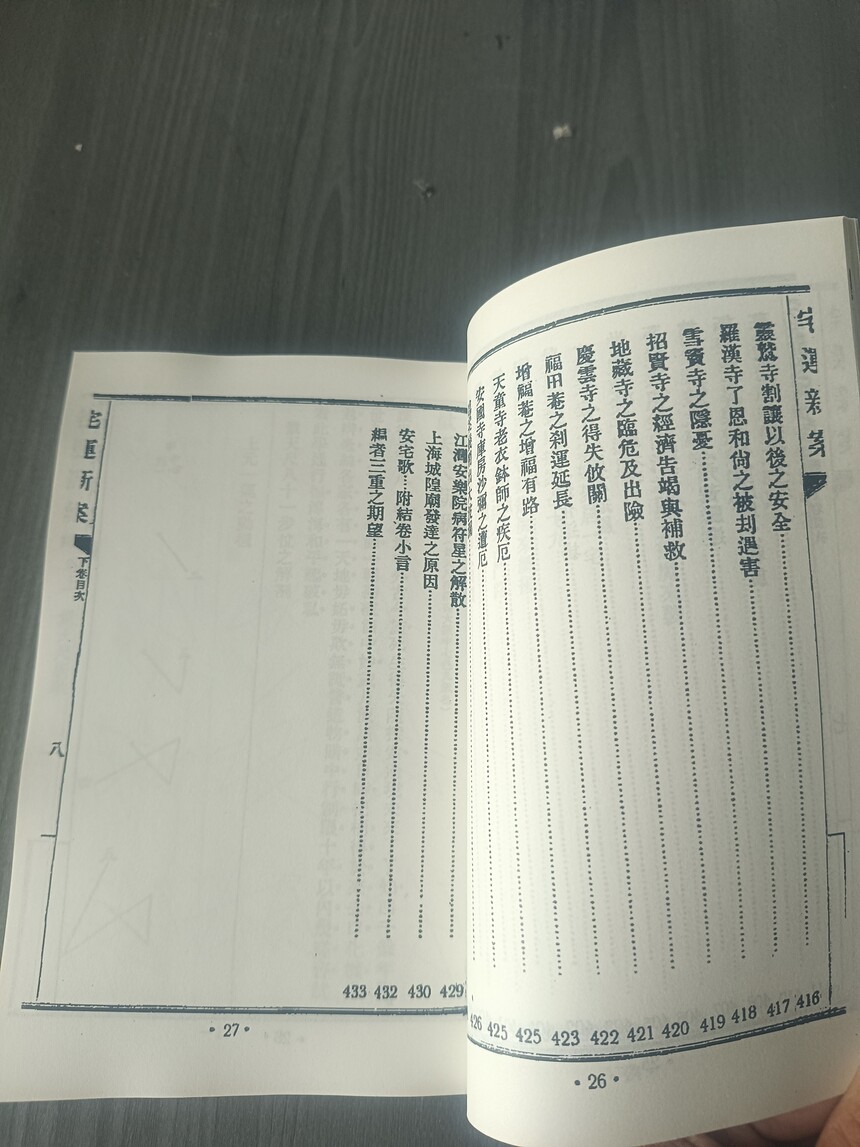 宅運新案
靈鷲寺割讓以後之安全……416
羅漢寺了恩和尚之被刦遇害……417
雪竇寺之隱憂……418
招賢寺之經濟告竭與補救……419
地藏寺之臨危及出險……420
慶雲寺之得失攸關……421
福田菴之剎運延長……422
增福菴之增福有路……423
天童寺老衣鉢師之疾厄……425
安國寺庫房沙彌之遭厄……425
426
•26•
江灣安樂院病符星之解散……429
上海城隍廟發達之原因……430
安宅歌…附結卷小言……432
編者三重之期望……433
宅運新案
下卷目次
八
•27•